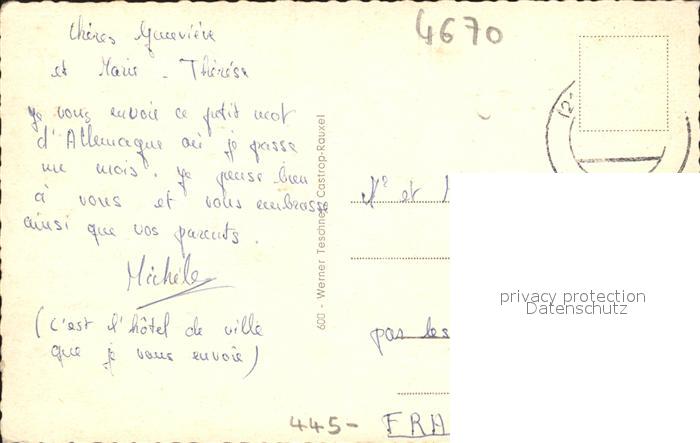 4670
Chères Geneviève
et Marie - Thérèse
Je vous envoie ce petit mot
d'Allemagne où je passe
un mois. Je pense bien
à vous et vous embrasse
ainsi que vos parents.
Michèle
(c'est l'hôtel de ville
que je vous envoie)
600 - Werner Teschner, Castrop-Rauxel
Mr et
pas les
445-
FRA
privacy protection
Datenschutz